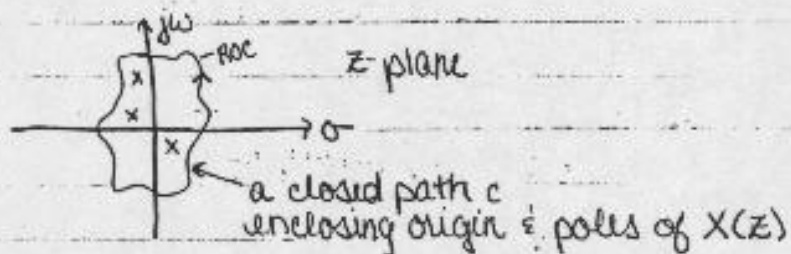 jω
ROC
z-plane
x
x
x
σ
a closed path c
enclosing origin & poles of X(z)